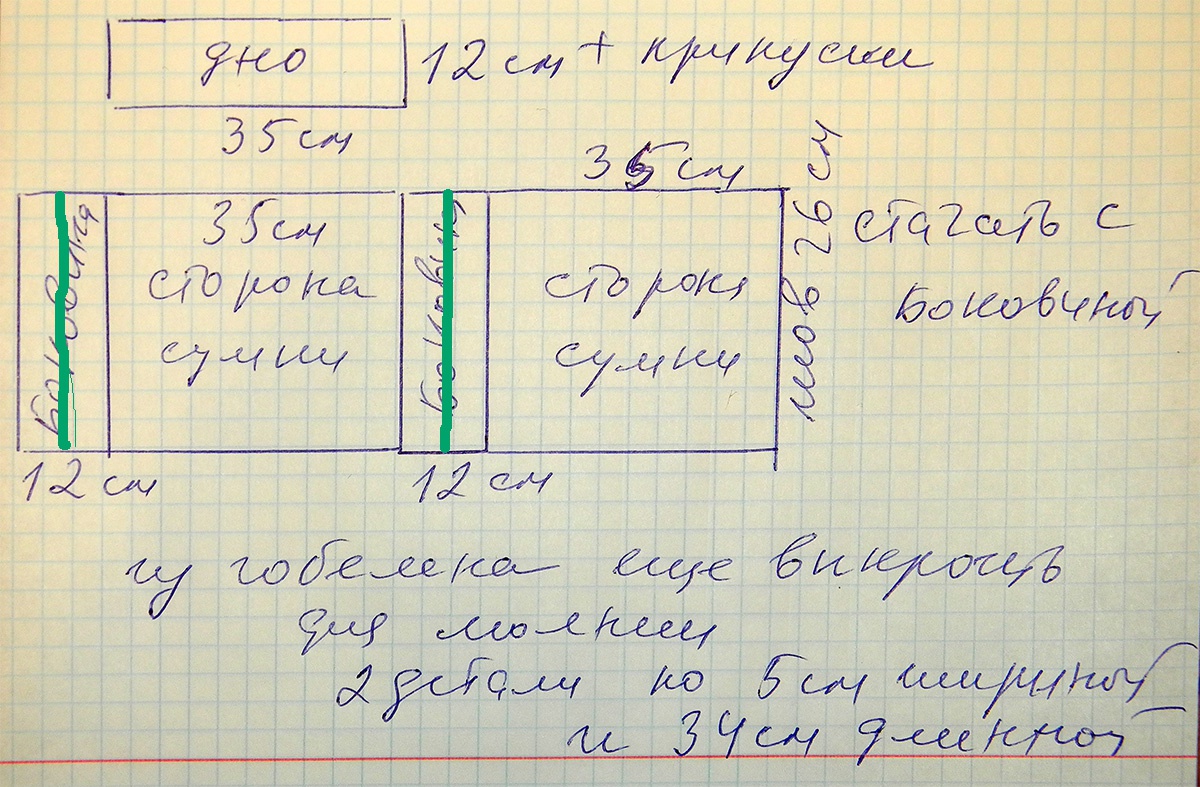 дно
12 см + припуски
35 см
35 см
боковина
35 см
сторона
сумки
боковина
сторона
сумки
шов 26 см
стачать с
боковиной
12 см
12 см
из гобелена еще выкроить
для молнии
2 детали по 5 см шириной
и 34 см длинной